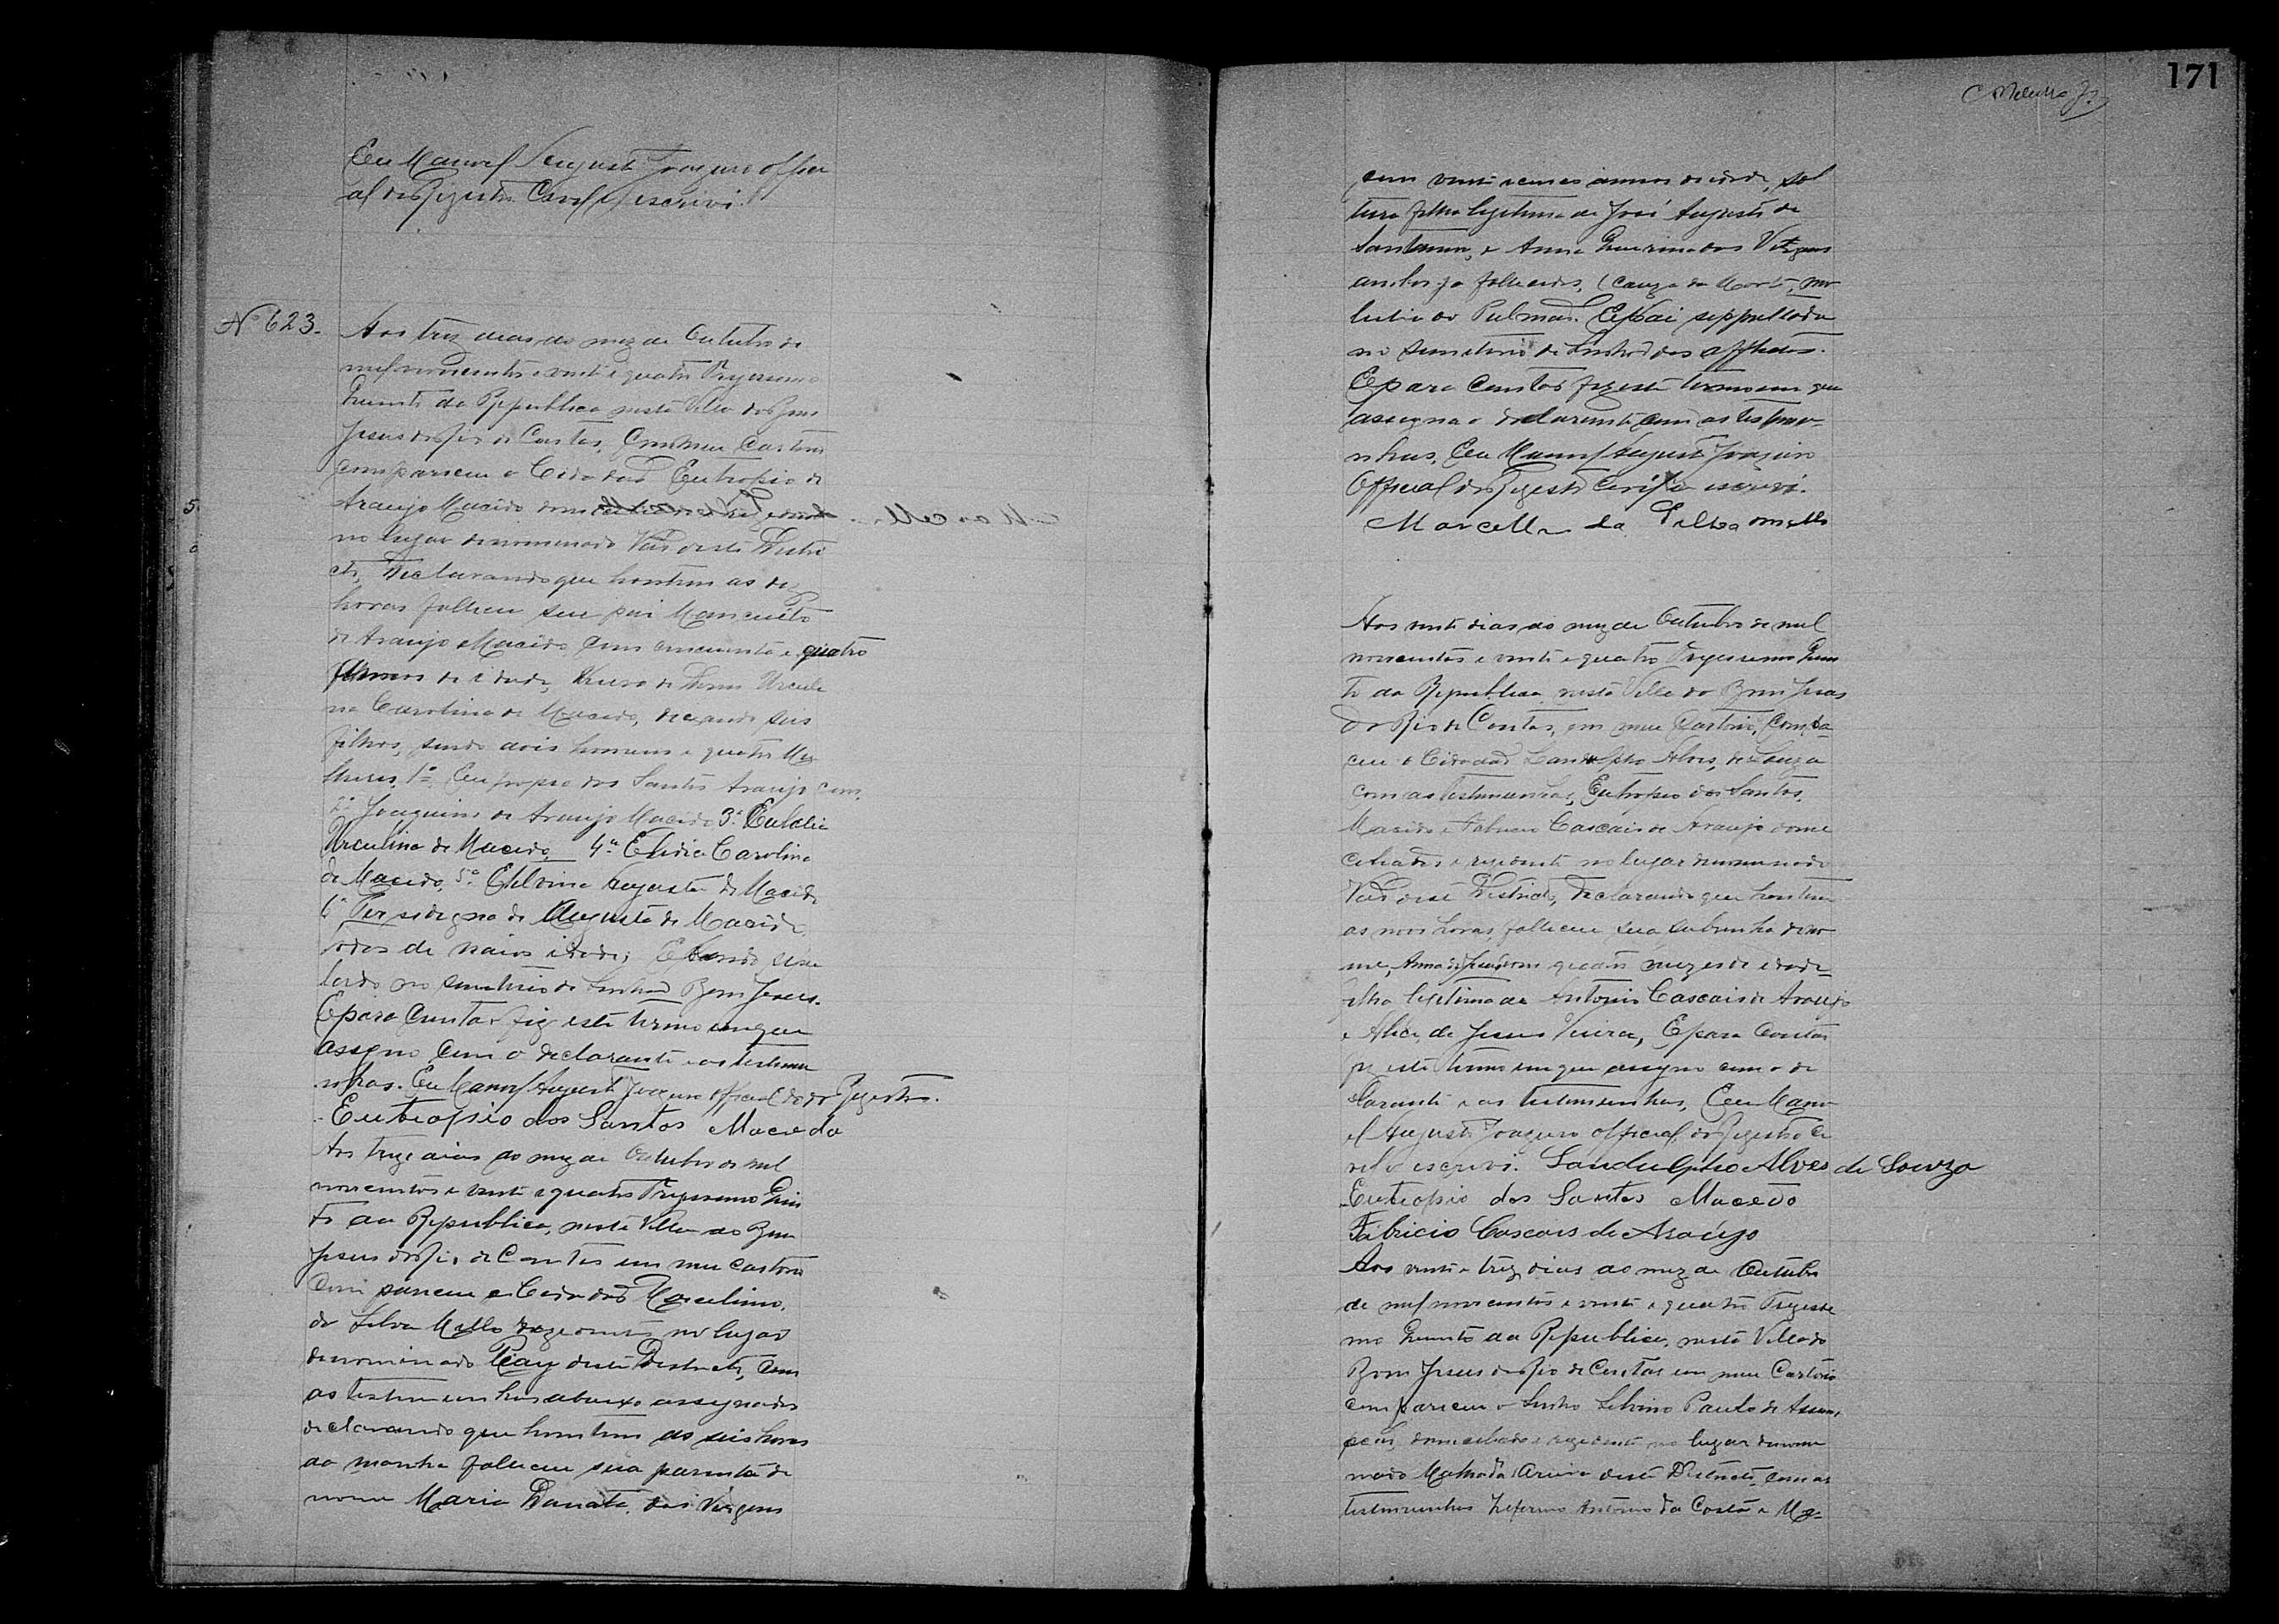 Eu Manoel Augusto Joazeiro offici
al do Registro Civil o escrevi.
Nº 623.
Aos trez dias do mez de Outubro de
mil novecentos e vinte e quatro Trigesimo
Quinto da Republica nesta Villa do Bom
Jesus do Rio de Contas, em meu Cartorio
compareceu o Cidadão Eutropio de
Araujo Macêdo domiciliado e rezidente
no lugar denominado Vao deste Destri
cto, Declarando que hontem as dez
horas falleceu seu pai
de Araujo Macêdo, com cincoenta e quatro
annos de idade, Viuvo de Dona Urculi
na Carolina de Macedo, deixando seis
filhos, sendo dois homens e quatro Mu
lheres, 1º dos Santos Araujo
2º Joaquim de Araujo Macedo 3ª Eulalia
Urculina de Macedo, 4ª Elidia Carolina
de Macedo, 5ª Etelvina Augusta de Macedo
6ª Augusta de Macêdo
todos de maior idade; E sendo sepul
tado no semiterio do Senhor Bom Jesus.
E para constar fiz este termo em que
assigno com o declarante e as testemu
nhas. Eu Manoel Augusto Joazeiro official do Registro.
Eutropsio dos Santos Macedo
Aos treze dias do mez de Outubro de mil
novecentos e vinte e quatro Trigesimo Quin
to da Republica, nesta Villa do Bom
Jesus do Rio de Contas em meu Cartorio
Compareceu o Cidadão Marcelino
da Silva Mello rezidente no lugar
denominado deste Destricto, com
as testemunhas abaixo assignados
declarando que hontem as seis horas
da manha falleceu sua parenta de
nome Maria Donata das Virgens
171
com vinte e cinco annos de idade, sol
teira filha legitima de José Augusto de
Santanna, e Anna das Virgens
ambos ja fallecidos, Cauza da Morte, mo
lestia do Pulmão. E vai seppultada
no semiterio do Senhor dos Afflictos.
E para constar fiz este termo em que
assigna o declarente com as testemu-
nhas, Eu Manoel Augusto Joazeiro
Official do Registro Civil o escrevi.
Marcellino da Silva mello
Aos vinte dias do mez de Outubro de mil
novecentos e vinte e quatro Trigesimo Quin
to da Republica nesta Villa do Bom Jesus
do Rio de Contas, em meu Cartorio, Compa-
ceu o Cidadão Landolpho Alves de Souza
com as testemunhas, Eutropio dos Santos
Macêdo e Fabricio Cascais de Araujo domi
ciliados e rezidente no lugar denominado
Vao deste Destricto, Declarando que hontem
as nove horas falleceu sua subrinha de no
me, Anna de Jesus com quatro mezes de idade
filha legitima de Antonio Cascais de Araujo
e Alice de Jesus Vieira, E para Constar
fiz este termo em que assigno com o de
clarante e as testemunhas, Eu Mano
el Augusto Joazeiro official do Registro Ci
vil o escrevi. Landulpho Alves de Souza
Eutropsio dos Santos Macêdo
Fabricio Cascais de Araújo
Aos vinte e trez dias do mez de Outubro
de mil novecentos e vinte e quatro Trigesi
mo Quinto da Republica, nesta Villa do
Bom Jesus do Rio de Contas em meu Cartorio
compareceu o Senhor Silvino Paulo de Assum
pção, domiciliado e rezidente no lugar denomi
nado deste Destricto, com as
testemunhas Zeferino Antonio da Costa e Ma-